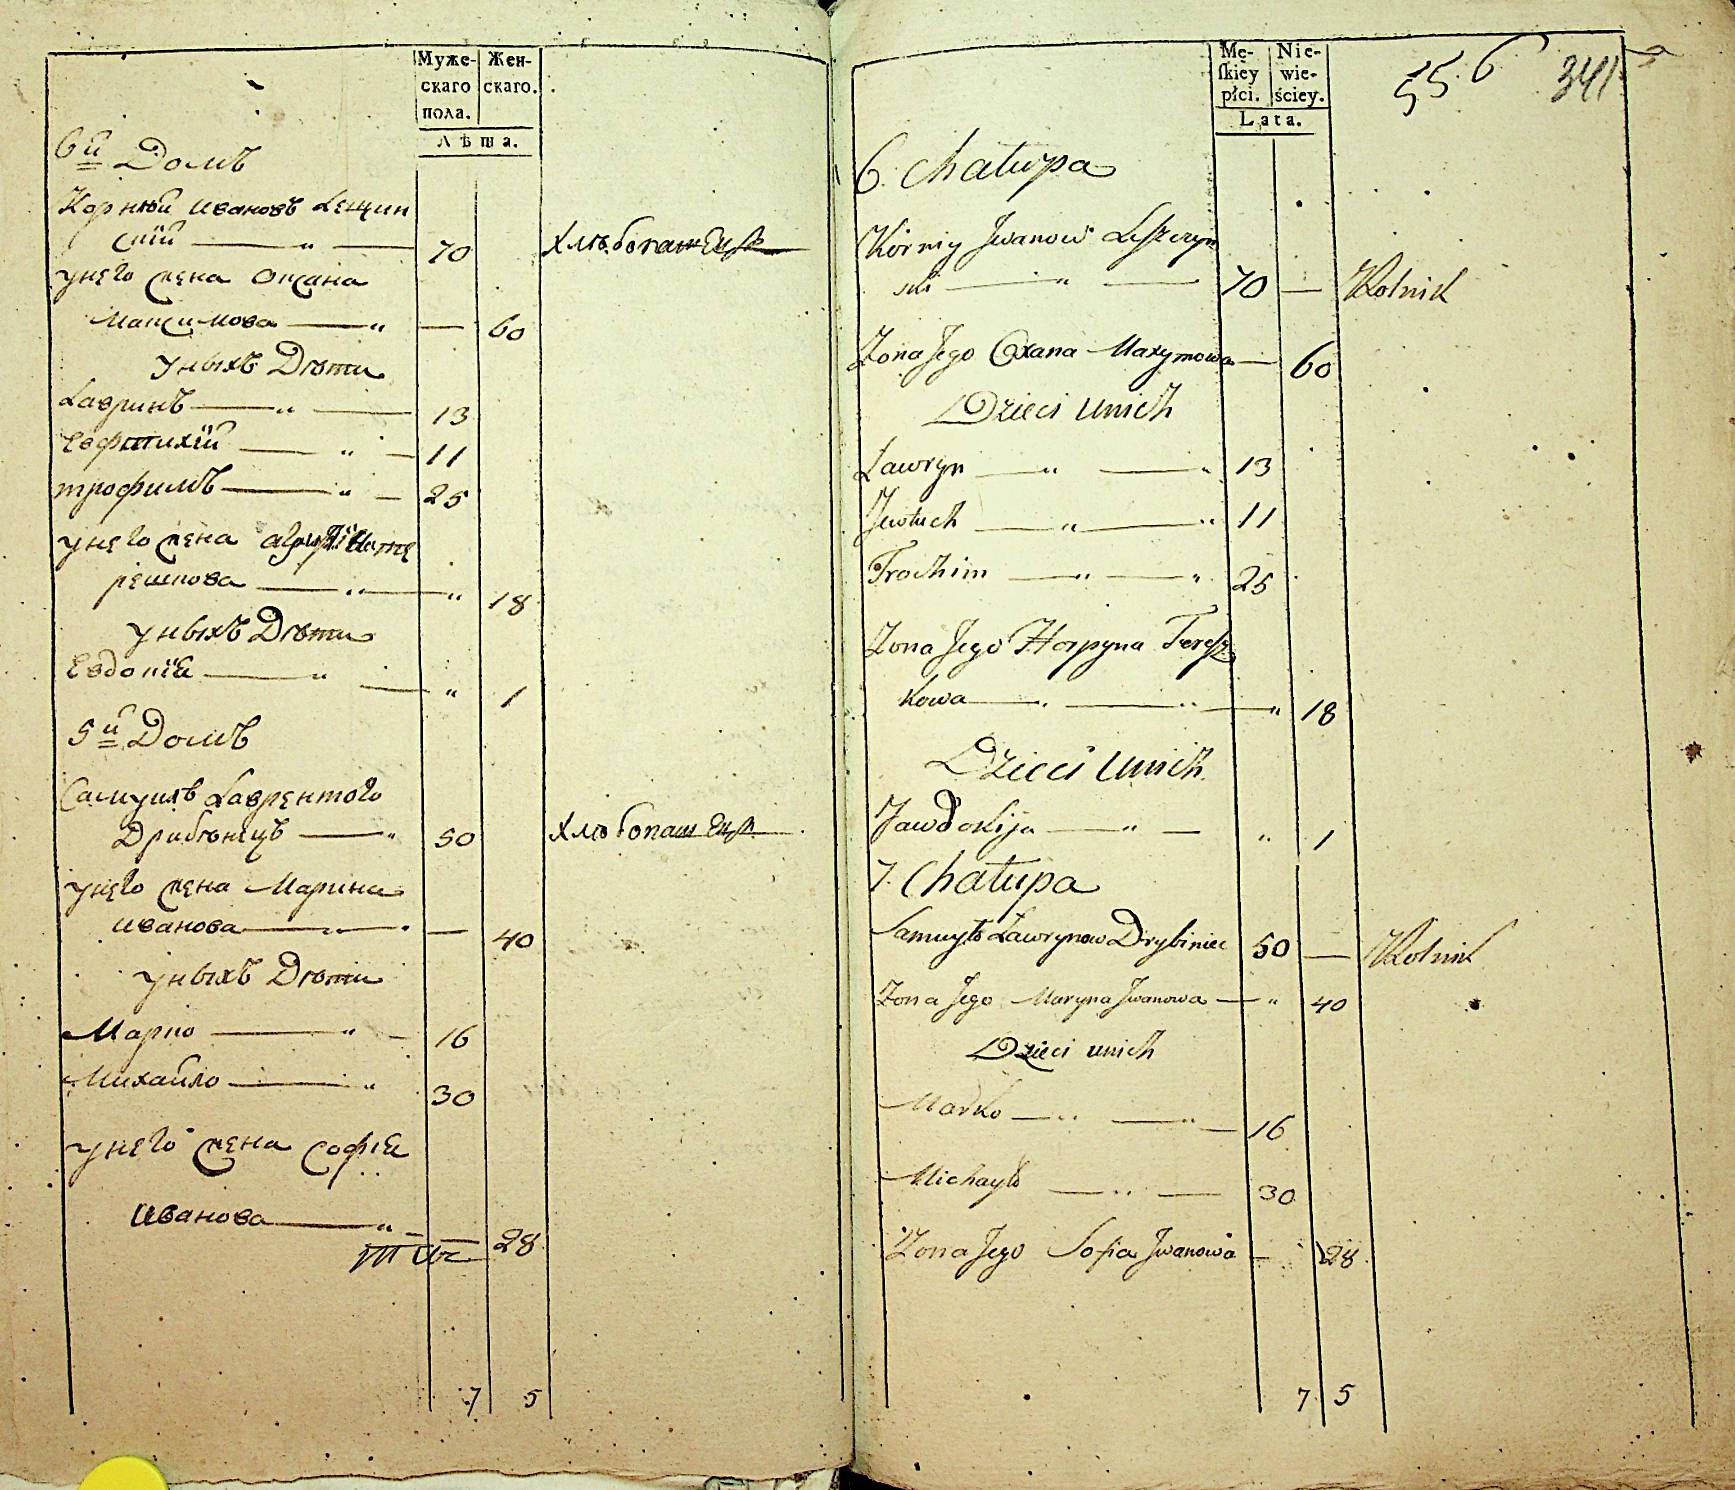 Муже-
скаго
пола.
Жен-
скаго.
Лѣта.
6й Домъ
Корнѣй Ивановъ Лещин
скій — „ — 70
Хлѣбопашецъ
у него жена Оксана
Максимова — „ — 60
у ныхъ Дѣти
Лавринъ — „ — 13
Евфтихій — „ — 11
трофимъ — „ — 25
у него жена
решкова — „ — „ 18
у ныхъ Дѣти
Евдокіа — „ — „ 1
5й Домъ
Самуилъ Лаврентого
Дрибѣнецъ — „ 50
Хлѣбопашецъ
у него жена Марина
иванова — „ — 40
у ныхъ Дѣти
Марко — „ — 16
Михайло — „ 30
у него жена Софіа
Иванова — „ — 28
7 5
Mę-
skiey
płci.
Nie-
wie-
ściey.
Lata.
556 341
6. Chałupa
Kórniy Jwanow Leszczyn
ski — „ — 70 — Rolnik
Zona Jego Oxana Maxymowa — 60
Dzieci unich
Ławryn — „ — „ 13
Jewtuch — „ — „ 11
Trochim — „ — „ 25
Zona Jego Horpyna Teresz
kowa — „ — „ — „ 18
Dzieci unich
Jawdokija — „ — „ 1
7. Chałupa
Samuyło Ławrynow Drybiniec 50 — Rolnik
Zona Jego Maryna Jwanowa — „ 40
Dzieci unich
Marko — „ — „ — 16
Michayło — „ — 30
Zona Jego Sofia Jwanowa — 28
7 5